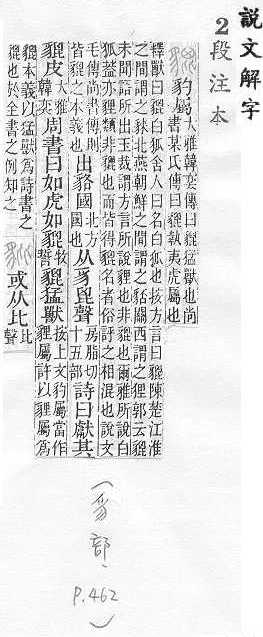 說文解字
2段注本
貔 豹屬 大雅韓奕傳曰貔猛獸也尚書某氏傳曰貔執夷虎屬也
釋獸曰貔白狐舍人曰名白狐也按方言曰貔陳楚江淮
之間謂之䝟北燕朝鮮之間謂之豾關西謂之狸郭云貔
未聞語所出玉裁謂方言所說貍也非貔也爾雅所說白
狐葢亦貍類非貔也而皆得貔名者俗評之相混也說文
毛傳尚書傳則皆貔之本義也 出貉國 北方國也 从豸𣬉聲 房脂切十五部 詩曰獻其
貔皮 大雅韓奕 周書曰如虎如貔 牧誓 貔猛獸 按上文豹屬當作貍屬許以貍屬爲
貔本義以猛獸爲詩書之貔也於全書之例知之 豼 或从比 比聲
(豸部、
P.462)